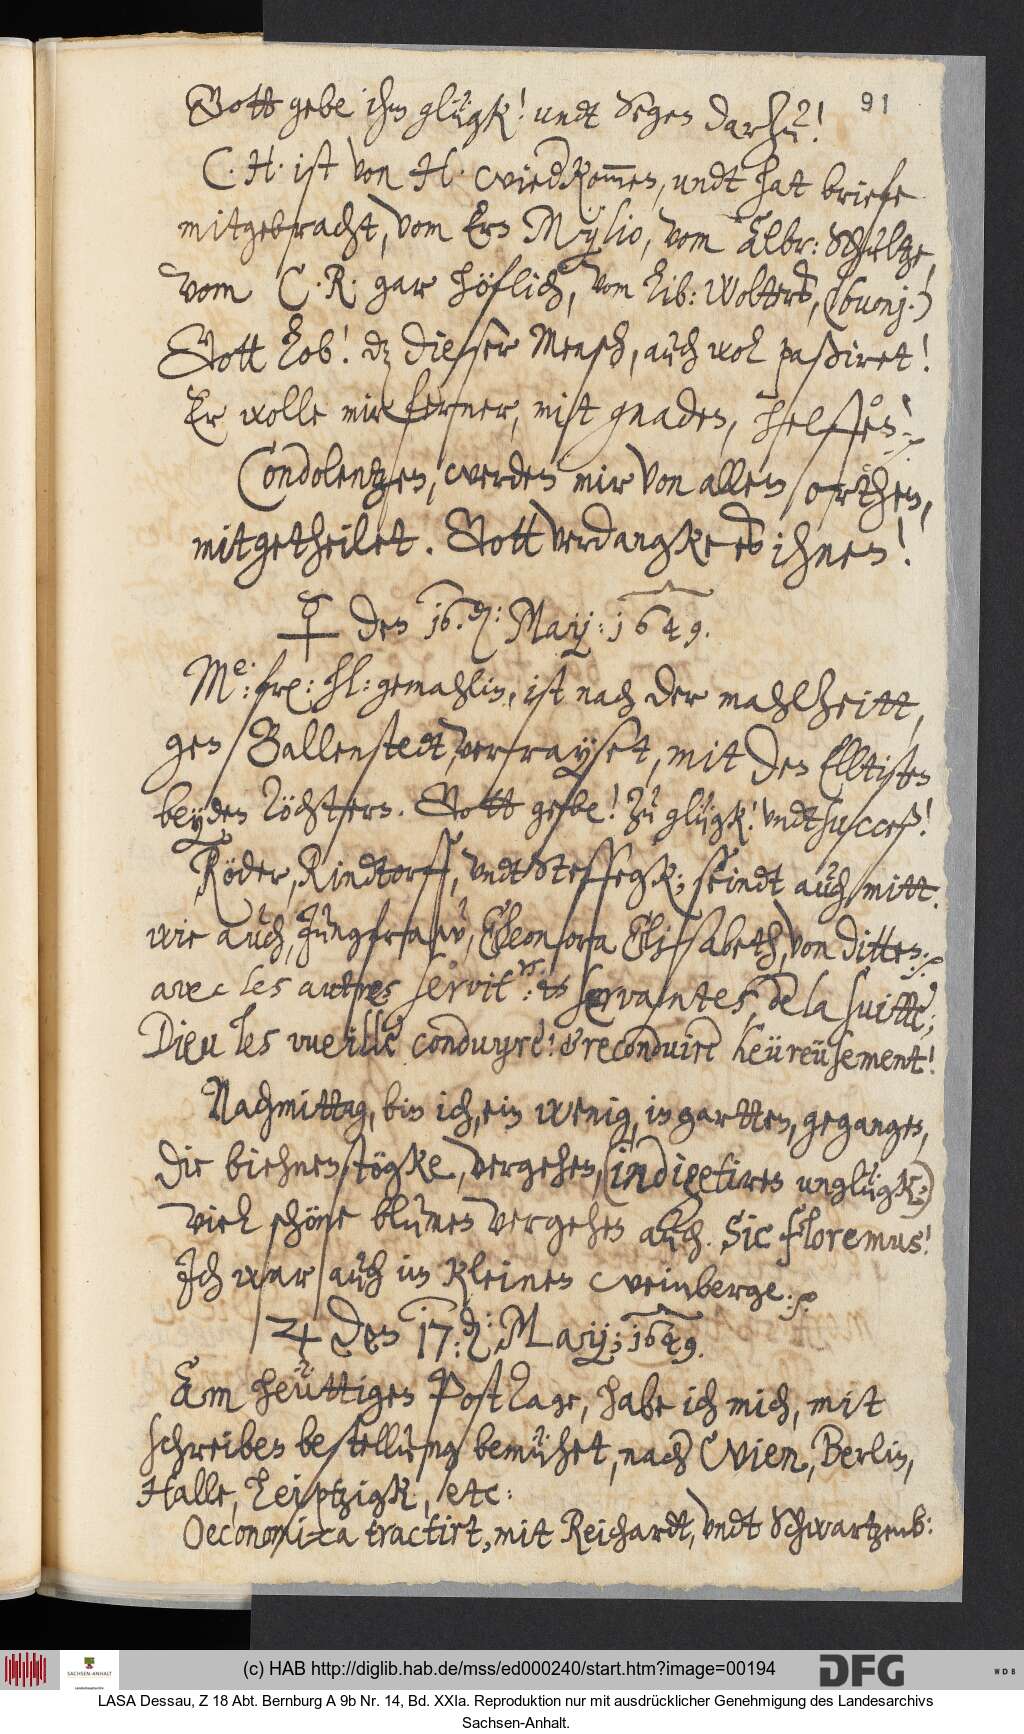 91
Gott gebe ihm glügk! undt Segen darzu!
C. H. ist von H. wiedkom̅en, undt hat briefe
mitgebracht, vom Ern Mylio, vom Albr: Schultze,
vom C. R. gar höflich, vom Lib: Wolters, (buonj.)
Gott Lob! dz dieser Mensch, auch wol paßiret!
Er wolle mir ferner, mit gnaden, helffen
Condolentzen, werden mir von allen orthen,
mitgetheilet. Gott verdangke es ihnen!
☿ den 16. May: 1649.
Me: fre: hl: gemahlin, ist nach der mahlzeitt,
gen Ballenstedt, verrayset, mit den Elltisten
beyden Töchtern. Gott gebe! zu glügk! undt succeß!
Röder, Rindtorff, undt Steffegk; seindt auch mitt.
wie auch, Jungfraw, Eleonora Elisabeth, von Ditten
avec les autres servit:rs et servantes, de la suitte;
Dieu les vueille conduyre! & reconduire heüreüsement!
Nachmittag, bin ich, ein wenig, in gartten, gegangen,
die biehnenstögke, vergehen, (indicetires unglügk;)
viel schöne blumen vergehen auch. Sic floremus!
Ich war auch im kleinen weinberge.
♃ den 17: May; 1649.
Am heüttigen Post Tage, habe ich mich, mit
schreiben bestellung bemühet, nach Wien, Berlin,
Halle, Leiptzigk, etc:
Oeconomica tractirt, mit Reichardt, undt Schwartzenb:
(c) HAB http://diglib.hab.de/mss/ed000240/start.htm?image=00194
SACHSEN-ANHALT
DFG
WDB
LASA Dessau, Z 18 Abt. Bernburg A 9b Nr. 14, Bd. XXIa. Reproduktion nur mit ausdrücklicher Genehmigung des Landesarchivs
Sachsen-Anhalt.